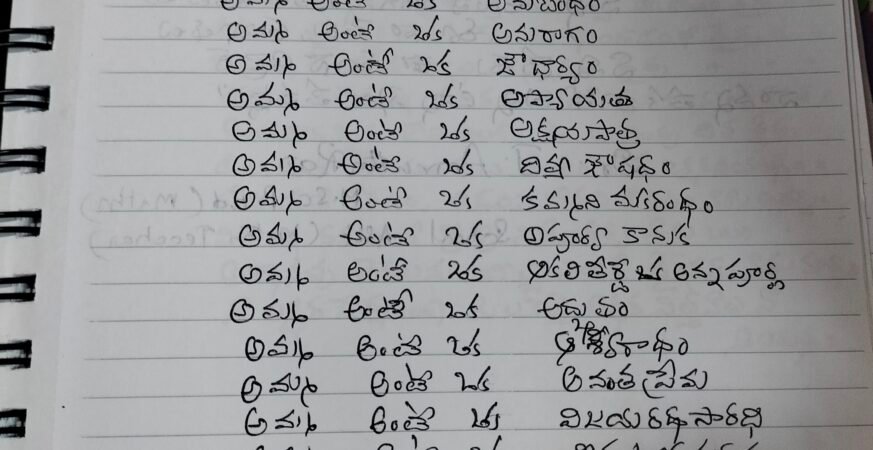 అమ్మ అంటే ఒక అనుబంధం
అమ్మ అంటే ఒక అనురాగం
అమ్మ అంటే ఒక ఔదార్యం
అమ్మ అంటే ఒక ఆప్యాయత
అమ్మ అంటే ఒక అక్షయపాత్ర
అమ్మ అంటే ఒక దివ్య ఔషధం
అమ్మ అంటే ఒక కమ్మని మకరంధం
అమ్మ అంటే ఒక అపూర్వ కానుక
అమ్మ అంటే ఒక ఆకలి తీర్చే ఒక అన్నపూర్ణ
అమ్మ అంటే ఒక అద్భుతం
అమ్మ అంటే ఒక
అమ్మ అంటే ఒక అనంత ప్రేమ
అమ్మ అంటే ఒక విజయ రథసారథి